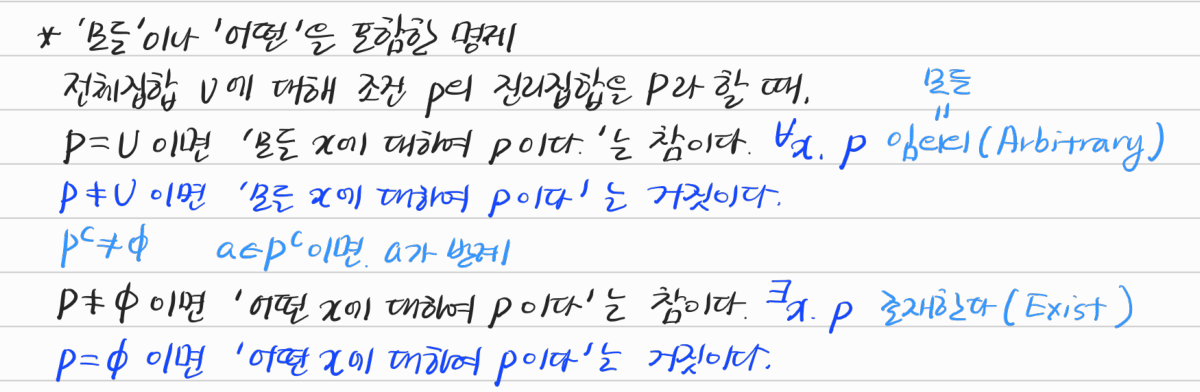 * '모든'이나 '어떤'을 포함한 명제
전체집합 U에 대해 조건 p의 진리집합을 P라 할 때,
모든
"
P=U 이면 '모든 x에 대하여 p이다.'는 참이다. ∀x, p 임의의(Arbitrary)
P≠U 이면 '모든 x에 대하여 p이다'는 거짓이다.
P^C≠∅ a∈P^C이면, a가 반례
P≠∅이면 '어떤 x에 대하여 p이다'는 참이다. ∃x, p 존재한다(Exist)
P=∅ 이면 '어떤 x에 대하여 p이다'는 거짓이다.